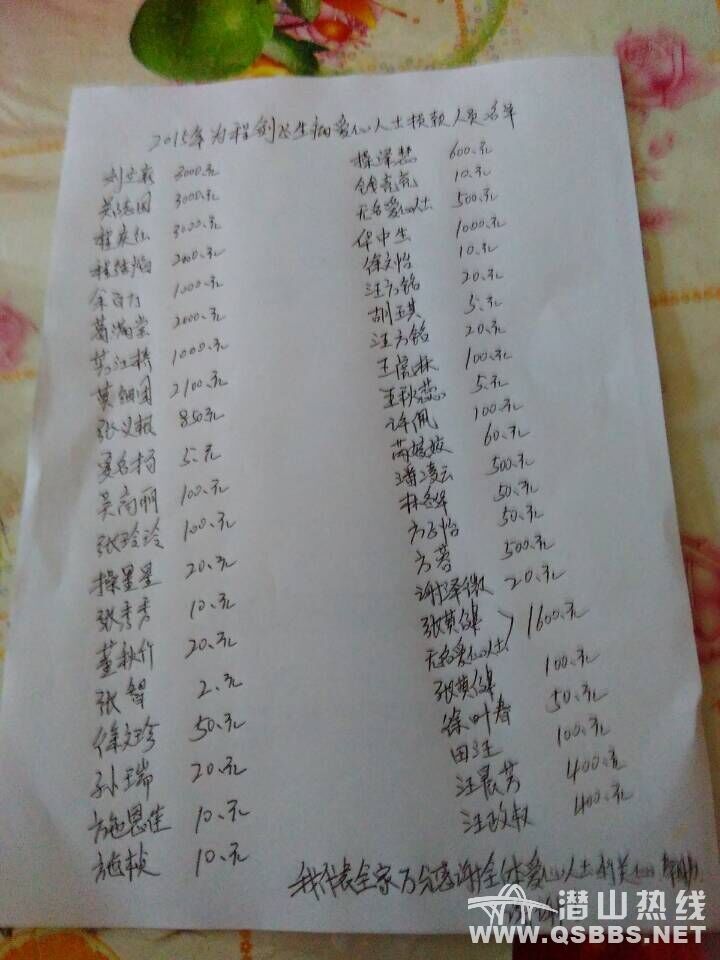 2015年为程剑生病爱心人士捐款人员名单
3000.元
3000.元
3000.元
2000元
1000.元
2000.元
1000.元
2100.元
张义根 850元
5.元
吴尚丽 100.元
张玲玲 100.元
操星星 20.元
张秀秀 10.元
董秋竹 20.元
张智 2.元
徐文珍 50.元
孙瑞 20.元
施恩莲 10.元
施桢 10.元
操泽慧 600.元
10.元
无名爱心人士 500.元
华中生 1000.元
徐文怡 10.元
汪方铭 20.元
胡玉其 5.元
汪方铭 20.元
王虎林 100.元
王秋蕊 5.元
许佩 100.元
芮姣姣 60.元
潘凌云 500.元
林冬华 50.元
方子怡 50.元
方著 500.元
谢泽微 20.元
张黄
无名爱心人士 1600.元
张黄 100.元
徐叶春 50.元
田汪 100.元
汪晨芳 400.元
汪政权 400.元
我代表全家万分感谢全体爱心人士的关心
潜山热线
WWW.QSBBS.NET